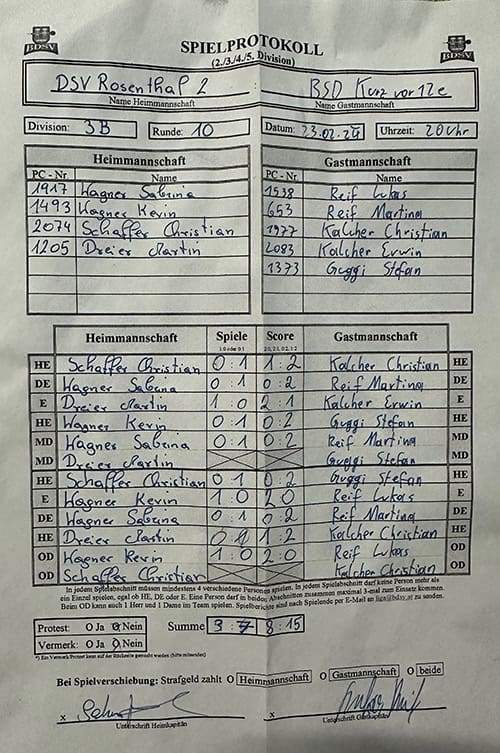 BDSV SPIELPROTOKOLL BDSV
(2./3./4./5. Division)
DSV Rosenthal 2 : BSD Kurz vor 12e
Name Heimmannschaft Name Gastmannschaft
Division: 3B Runde: 10 Datum: 23.02.24 Uhrzeit: 20 Uhr
Heimmannschaft Gastmannschaft
PC - Nr. Name PC - Nr. Name
1917 Wagner Sabrina 1538 Reif Lukas
1493 Wagner Kevin 653 Reif Martina
2074 Schaffer Christian 1977 Kalcher Christian
1205 Dreier Martin 2083 Kalcher Erwin
1373 Guggi Stefan
Heimmannschaft Spiele Score Gastmannschaft
1:0 oder 0:1 2:0, 2:1, 0:2, 1:2
HE Schaffer Christian 0 : 1 1 : 2 Kalcher Christian HE
DE Wagner Sabrina 0 : 1 0 : 2 Reif Martina DE
E Dreier Martin 1 : 0 2 : 1 Kalcher Erwin E
HE Wagner Kevin 0 : 1 0 : 2 Guggi Stefan HE
MD Wagner Sabrina 0 : 1 0 : 2 Reif Martina MD
MD Dreier Martin Guggi Stefan MD
HE Schaffer Christian 0 : 1 0 : 2 Guggi Stefan HE
E Wagner Kevin 1 : 0 2 : 0 Reif Lukas E
DE Wagner Sabrina 0 : 1 0 : 2 Reif Martina DE
HE Dreier Martin 0 : 1 1 : 2 Kalcher Christian HE
OD Wagner Kevin 1 : 0 2 : 0 Reif Lukas OD
OD Schaffer Christian Kalcher Christian OD
In jedem Spielabschnitt müssen mindestens 4 verschiedene Personen spielen. In jedem Spielabschnitt darf keine Person mehr als
ein Einzel spielen, egal ob HE, DE oder E. Eine Person darf in beiden Abschnitten zusammen maximal 3-mal zum Einsatz kommen.
Beim OD kann auch 1 Herr und 1 Dame im Team spielen. Spielberichte sind nach Spielende per E-Mail an liga@bdsv.at zu senden.
Protest: O Ja O Nein Summe 3 : 7 8 : 15
Vermerk: O Ja O Nein
*) Ein Vermerk/Protest kann auf der Rückseite gemacht werden (bitte mitsenden)
Bei Spielverschiebung: Strafgeld zahlt O Heimmannschaft O Gastmannschaft O beide
x x
Unterschrift Heimkapitän Unterschrift Gastkapitän